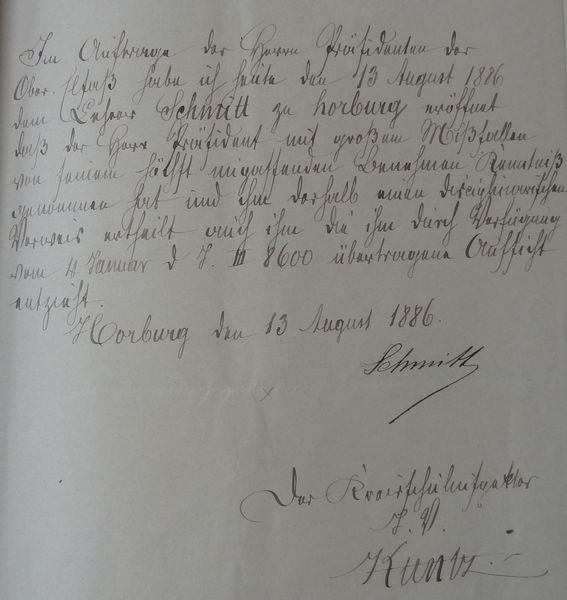 Im Auftrage des Herrn Präsidenten des
Ober-Elsaß habe ich heute den 13 August 1886
dem Lehrer Schmitt zu Horburg eröffnet
daß der Herr Präsident mit großem Mißfallen
von seinem höchst unpassenden Benehmen Kenntniß
genommen hat und ihm deshalb einen disciplinarischen
Verweis ertheilt auch ihm die ihm durch Verfügung
vom 4 Januar d J. III 8600 übertragene Aufsicht
entzieht.
Horburg den 13 August 1886.
Schmitt
Der Kreisschulinspektor
J. V.
Kuntz